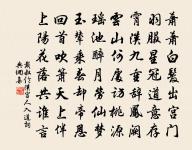 蕭蕭白髮出宮門
羽服星冠道意存
霄漢九重辭鳳闕
雲山何處訪桃源
瑤池醉月勞仙夢
玉輦乘春却帝恩
回首吹簫天上伴
上陽花落共誰言
戴叔倫漢宮人入道詞